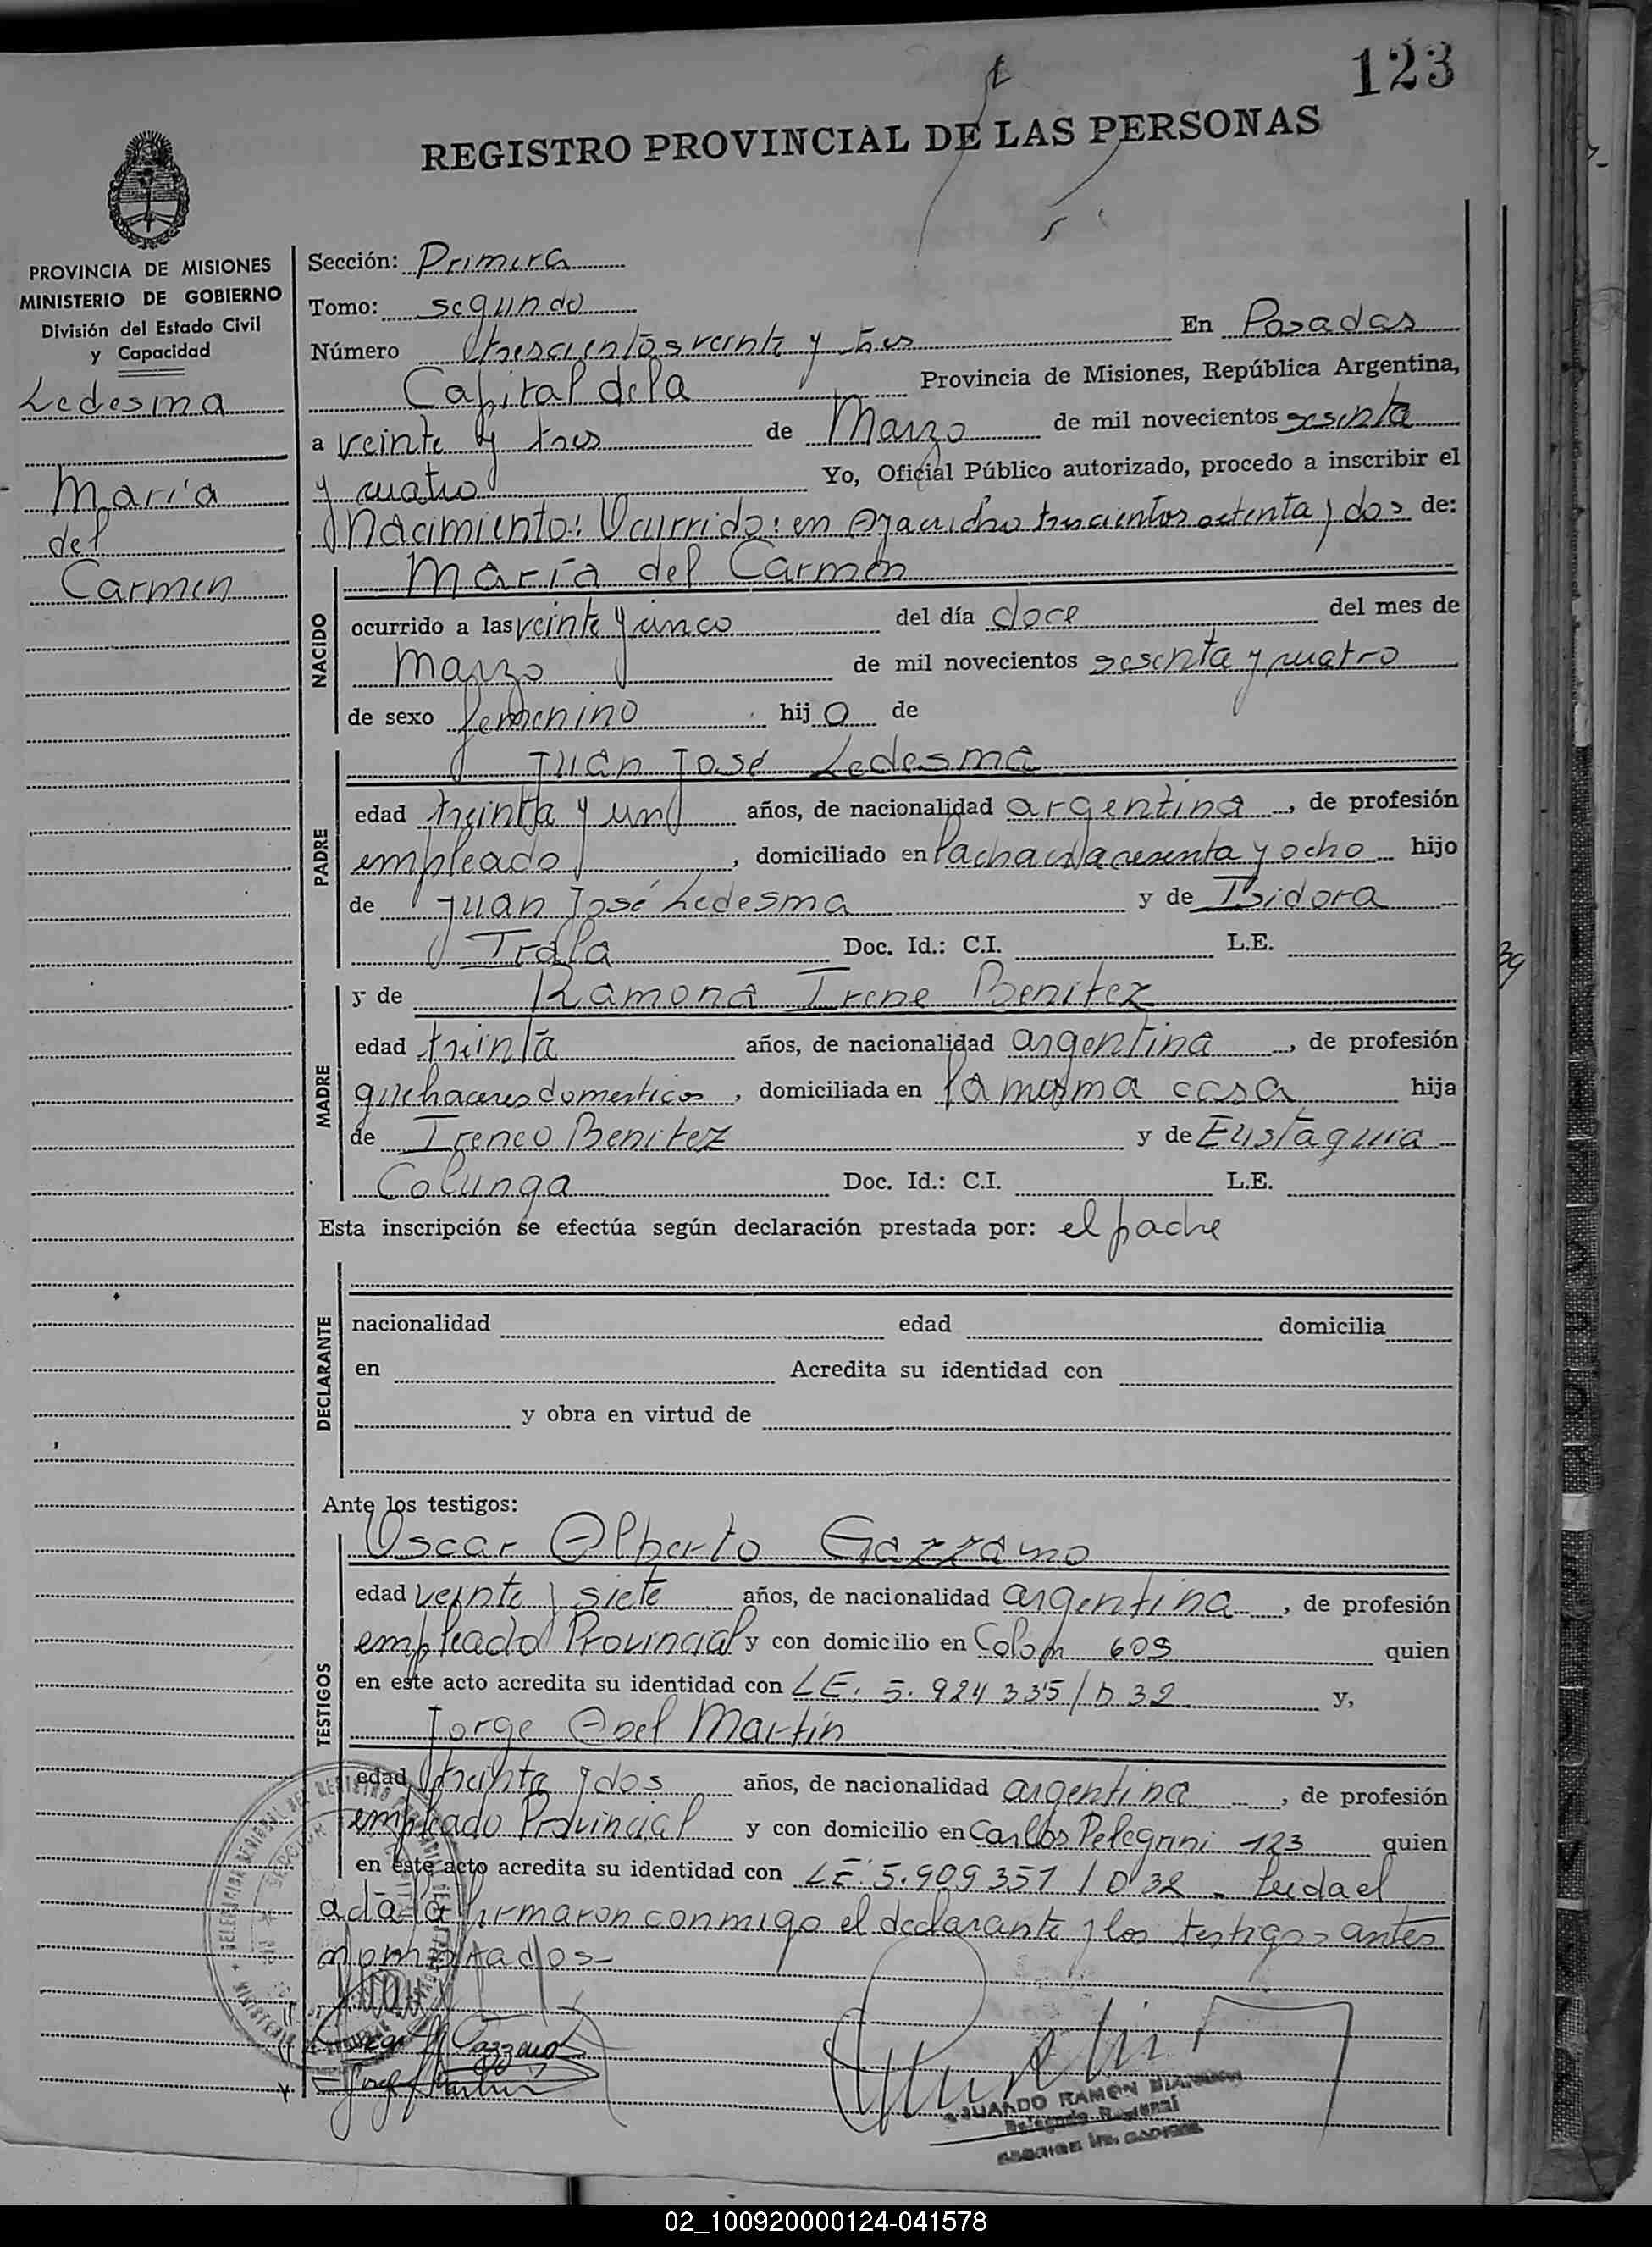 123
REGISTRO PROVINCIAL DE LAS PERSONAS
PROVINCIA DE MISIONES
MINISTERIO DE GOBIERNO
División del Estado Civil
y Capacidad
Ledesma
María
del
Carmen
Sección: Primera
Tomo: segundo
Número trescientos veinte y tres En Posadas
Capital de la Provincia de Misiones, República Argentina,
a veinte y tres de Marzo de mil novecientos sesenta
y cuatro Yo, Oficial Público autorizado, procedo a inscribir el
Nacimiento: Ocurrido: en Ayacucho trescientos setenta y dos de:
NACIDO
María del Carmen
ocurrido a las veinte y cinco del día doce del mes de
Marzo de mil novecientos sesenta y cuatro
de sexo femenino hijo de
PADRE
Juan José Ledesma
edad treinta y un años, de nacionalidad argentina, de profesión
empleado, domiciliado en la chacra sesenta y ocho hijo
de Juan José Ledesma y de Isidora
Trala Doc. Id.: C.I. L.E.
MADRE
y de Ramona Irene Benitez
edad treinta años, de nacionalidad argentina, de profesión
quehaceres domesticos, domiciliada en la misma casa hija
de Ireneo Benitez y de Eustaquia
Colunga Doc. Id.: C.I. L.E.
39
Esta inscripción se efectúa según declaración prestada por: el padre
DECLARANTE
nacionalidad edad domicilia
en Acredita su identidad con
y obra en virtud de
Ante los testigos:
TESTIGOS
Oscar Alberto Gazzano
edad veinte y siete años, de nacionalidad argentina, de profesión
empleado Provincial y con domicilio en Colon 609 quien
en este acto acredita su identidad con LE. 5.924 335/D 32 y,
Jorge Abel Martín
edad treinta y dos años, de nacionalidad argentina, de profesión
empleado Provincial y con domicilio en Carlos Pelegrini 123 quien
en este acto acredita su identidad con LE 5.909 351 / D 32 - Leida el
acta la firmaron conmigo el declarante y los testigos antes
nombrados-
EDUARDO RAMON
Delegado Regional
02_100920000124-041578